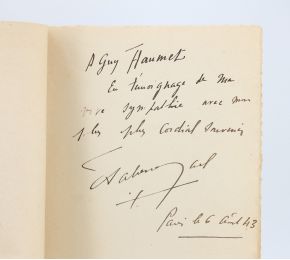 A Guy Haumet
En témoignage de ma
sympathie avec mon
plus cordial souvenir
Paris le 6 avril 43